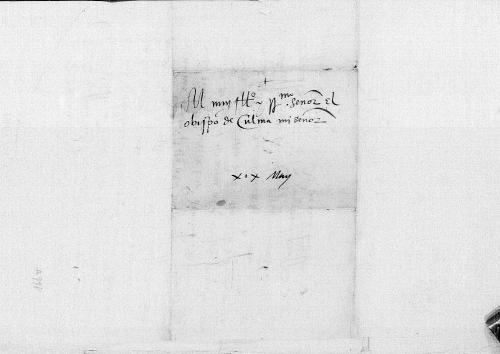 +
Al muy Ill.º y R.mo señor el
obispo de Culma mi señor
xix May